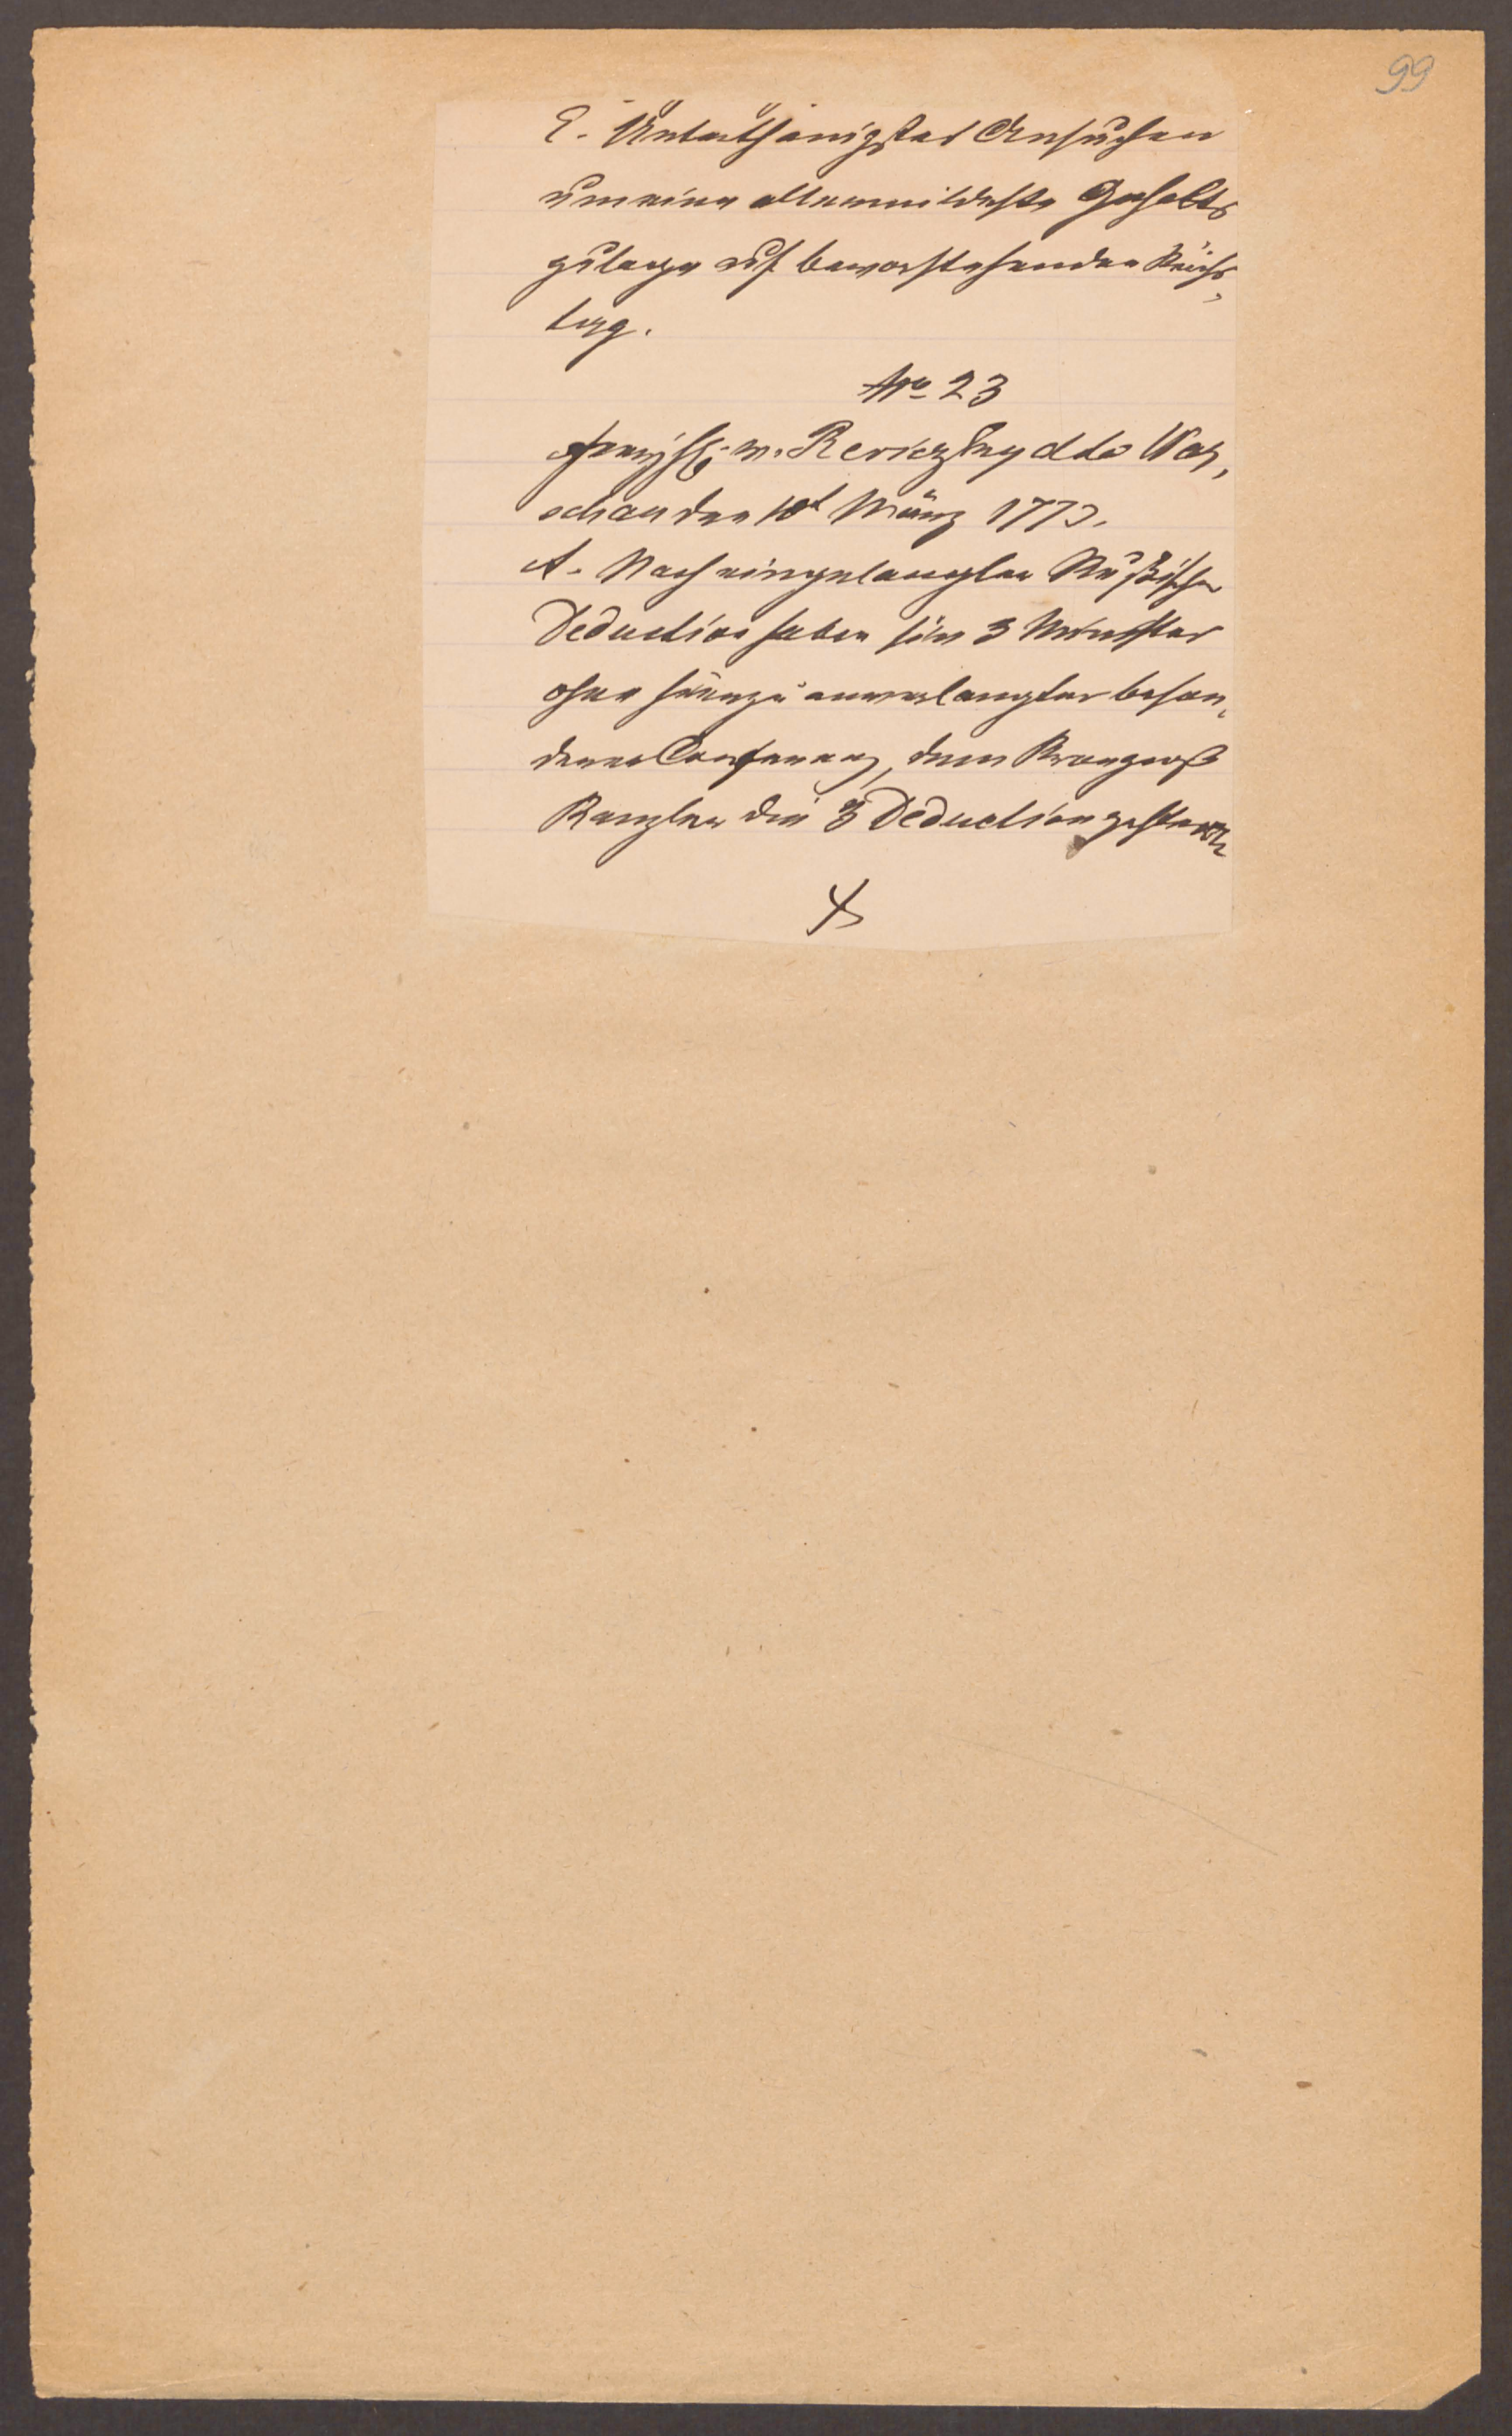 99
E. Unterthänigstes Ansuchen
um eine allermildeste Gehalts
zulage auf bevorstehenden Reichs-
tag.
No 23
v. Reviczky ddo War-
schau den 10t März 1773.
A. Nach eingelangter Rußischer
Deduction haben die 3 Minister
ohne hierzu anverlangter beson-
derer Conferenz, dem Krongroß
Kanzler die 3 Deductionen gestern